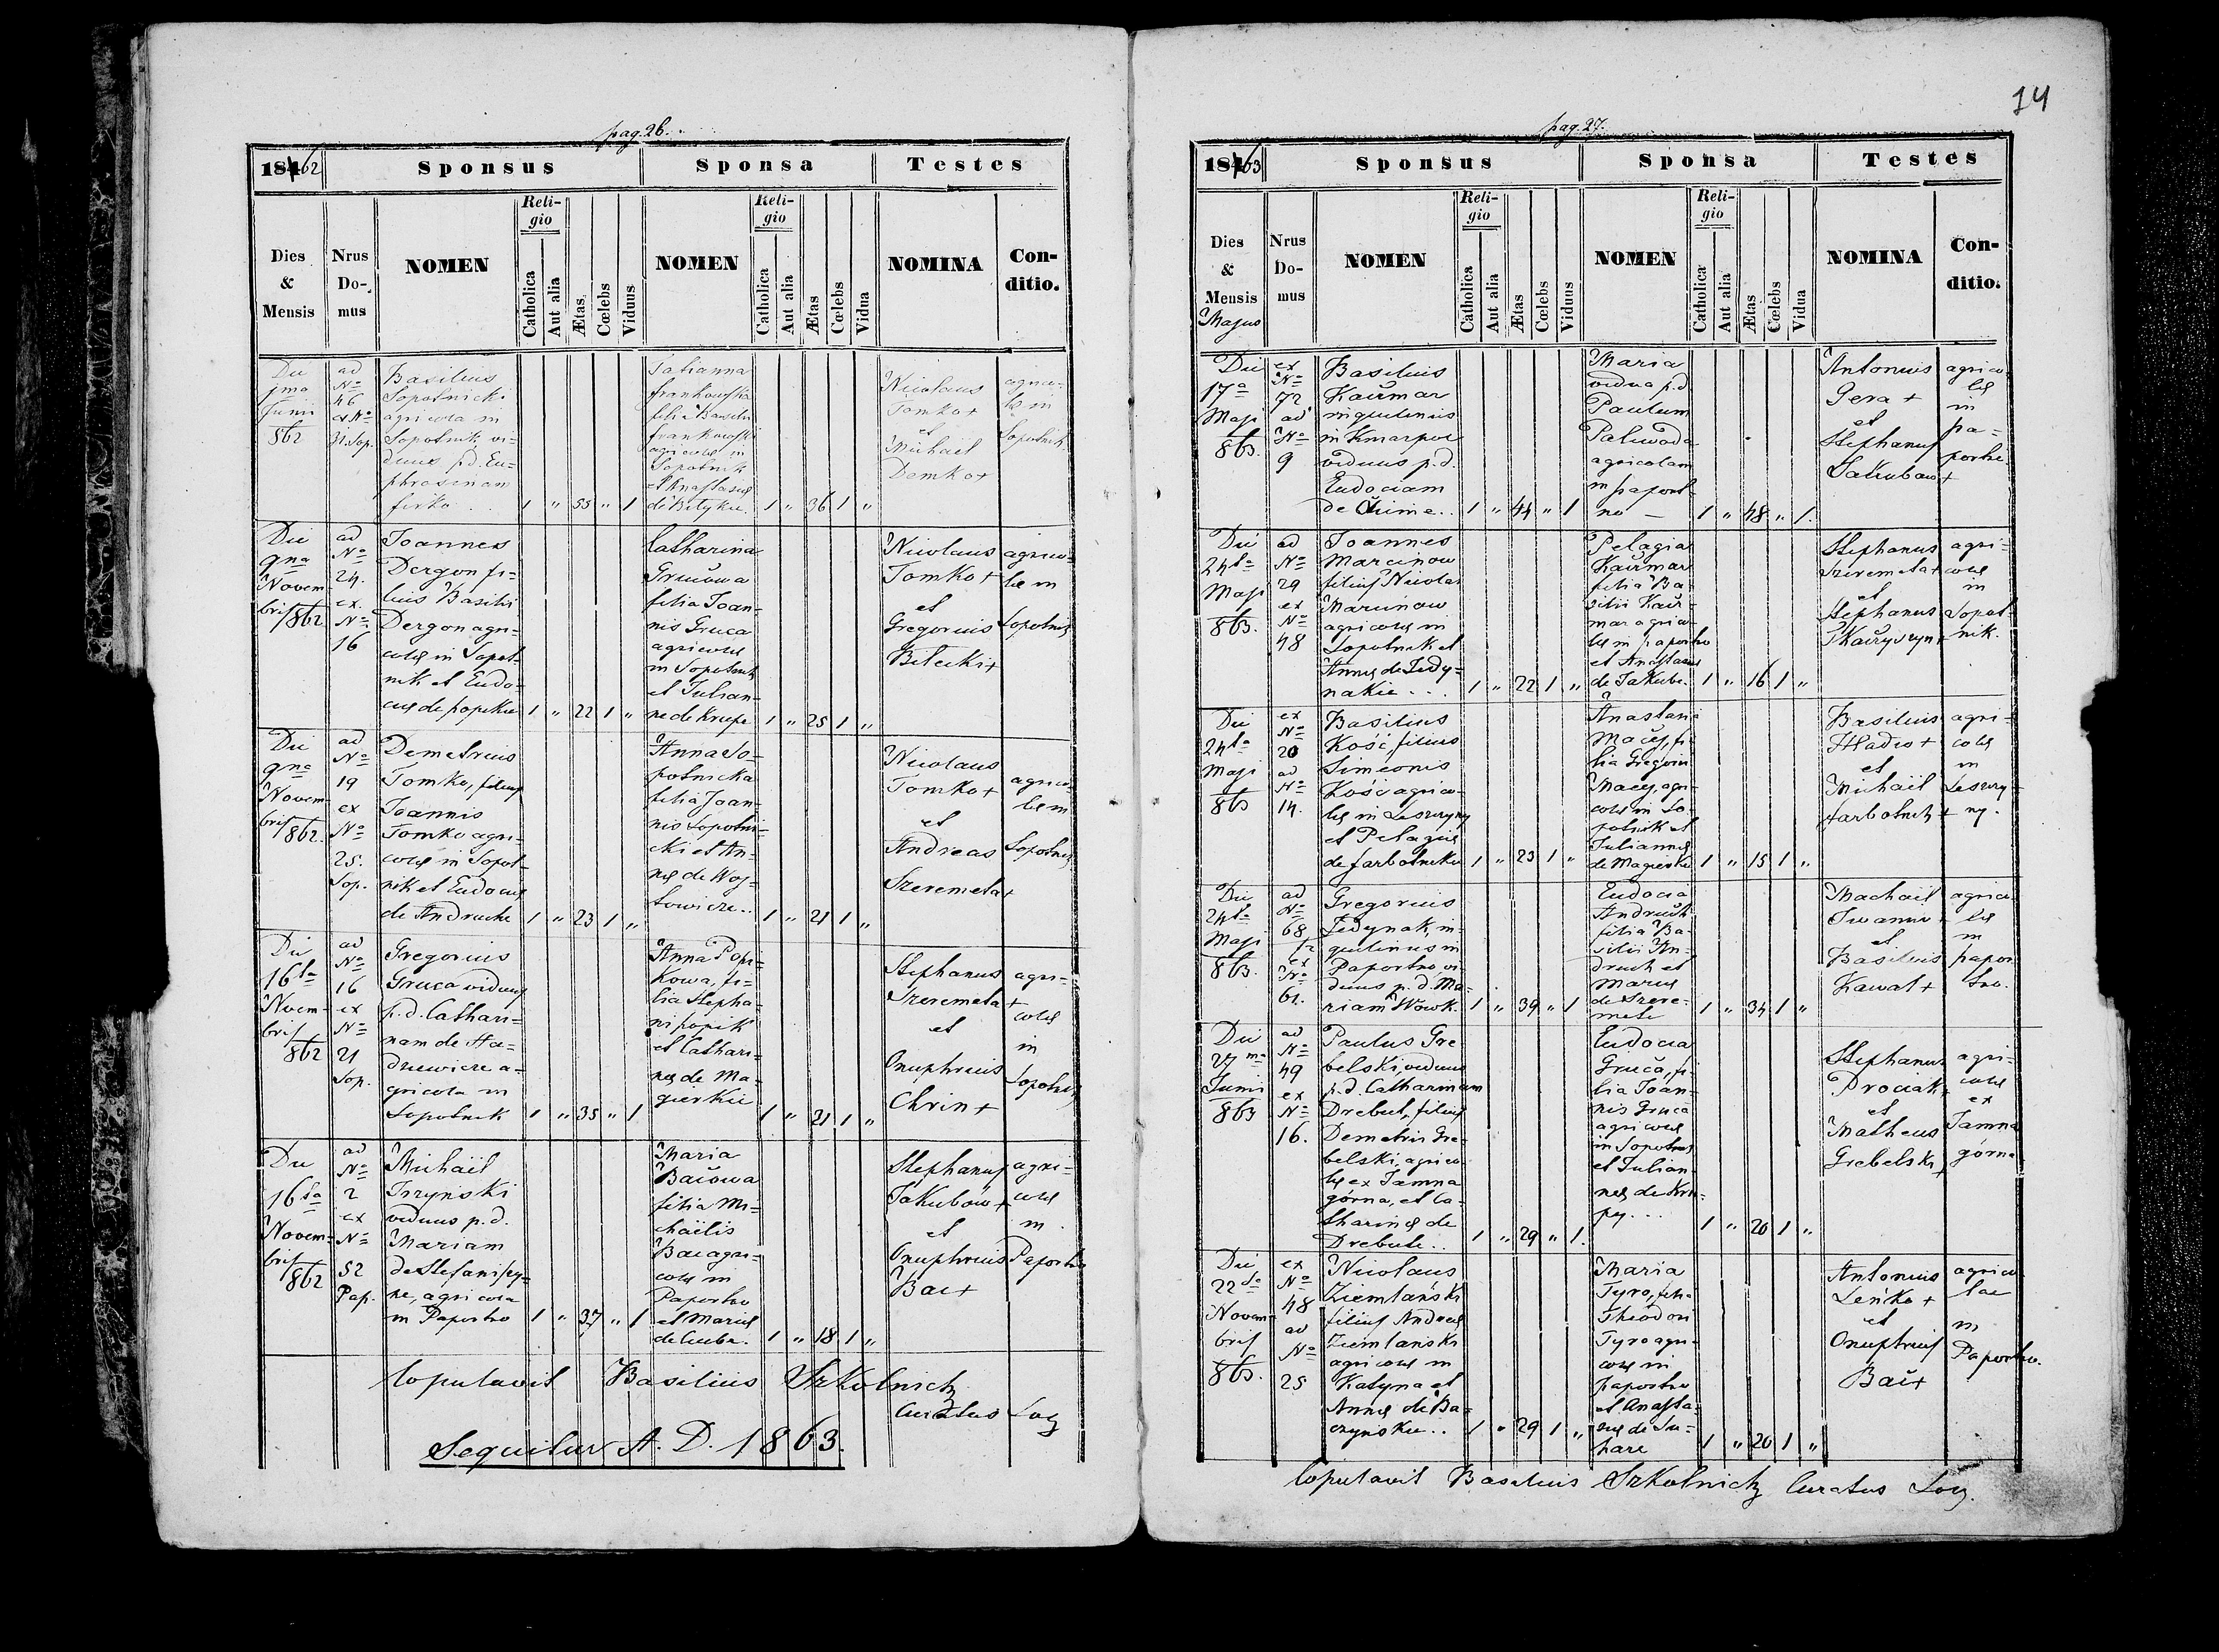 pag. 26.
1862
Sponsus
Sponsa
Testes
Dies
&
Mensis
Nrus
Do-
mus
NOMEN
Reli-
gio
Catholica
Aut alia
Ætas
Cœlebs
Viduus
NOMEN
Reli-
gio
Catholica
Aut alia
Ætas
Cœlebs
Vidua
NOMINA
Con-
ditio.
Die
1ma
Junii
862
ad
No
46
ex No
Basilius
Sopotnicki
agricola in
Sopotnik vi-
duus p.d. Eu-
phrosinam
1 " 55 " 1
Tatianna
Frankowska
filia Basilii
Frankowski
agricolæ in
Sopotnik
et Anastasiæ
de Bilykie.
1 " 36 1 "
Nicolaus
Tomko +
et
Michael
Demko +
agrico-
læ in
Sopotnik
Die
9na
Novem-
bris
862
ad
No
24.
ex.
No
16
Joannes
Dergon fi-
lius Basilii
Dergon agri-
colæ in Sopot-
nik et Eudo-
ciæ de Popikie
1 " 22 1 "
Catharina
Grucowa
filia Joan-
nis Gruca
agricolæ
in Sopotnik
et Julian-
næ de Krupe
1 " 25 1 "
Nicolaus
Tomko +
et
Gregorius
Bilecki +
agrico-
læ in
Sopotnik
Die
9na
Novem-
bris
862.
ad
No
19
ex
No
25.
Sop.
Demetrius
Tomko, filius
Joannis
Tomko agri-
colæ in Sopot-
nik et Eudociæ
de Andruche
1 " 23 1 "
Anna So-
potnicka
filia Joan-
nis Sopotni-
cki et An-
næ de Woj-
towicze..
1 " 21 1 "
Nicolaus
Tomko +
et
Andreas
Szeremeta +
agrico-
læ in
Sopotnik
Die
16ta
Novem-
bris
862
ad
No
16
ex
No
21
Sop.
Gregorius
Gruca viduus
p.d. Cathari-
nam de Ha-
drewicze a-
gricola in
Sopotnik
1 " 35 " 1
Anna Popi-
kowa, fi-
lia Stepha-
ni Popik
et Cathari-
næ de Ma-
gierkie
1 " 21 1 "
Stephanus
Szeremeta +
et
Onuphrius
Chrin +
agri-
colæ
in
Sopotnik
Die
16ta
Novem-
bris
862
ad
No
2
ex
No
52
Pap.
Michaël
viduus p.d.
Mariam
ne, agricola
in Paportno
1 " 37 " 1
Maria
Bačowa
filia Mi-
chaëlis
Bac agri-
colæ in
Paportno
et Mariæ
de Cicuba.
1 " 18 1 "
Stephanus
Jakubów +
et
Onuphrius
Bac +
agri-
colæ
in
Paportno
Copulavit Basilius Szkolnick
Curatus Loci
Sequitur A. D. 1863.
14
pag. 27.
1863
Sponsus
Sponsa
Testes
Dies
&
Mensis
Majus
Nrus
Do-
mus
NOMEN
Reli-
gio
Catholica
Aut alia
Ætas
Cœlebs
Viduus
NOMEN
Reli-
gio
Catholica
Aut alia
Ætas
Cœlebs
Vidua
NOMINA
Con-
ditio.
Die
17a
Maji
863.
ex
No
72
ad
No
9
Basilius
Kačmar
inquilinus
viduus p.d.
Eudociam
1 " 44 " 1
Maria
vidua p.d.
Paulum
Paliwoda
agricolam
in Paport-
no —
1 " 48 " 1.
Antonius
Gera +
et
Stephanus
Jakubów +
agrico-
læ
in
Pa-
portno
Die
24ta
Maji
863.
ad
No
29
ex
No
48
Joannes
Marcinow
filius Nicolai
Marcinow
agricolæ in
Sopotnik et
Annæ de Jedy-
nakie ...
1 " 22 1 "
Pelagia
Kačmar
filia Ba-
silii Kač-
mar agrico-
læ in Paportno
et Anastasiæ
de Jakube.
1 " 16 1 "
Stephanus
Szeremeta +
et
Stephanus
agri-
colæ
in
Sopot-
nik.
Die
24ta
Maji
863
ex
No
20
ad
No
14.
Basilius
Kość, filius
Simeonis
Kość agrico-
læ in Leszczyny
et Pelagiæ
de Jarbotnikie
1 " 23 1 "
Anastasia
Maćej, fi-
lia Gregorii
Maćej, agri-
colæ in So-
potnik et
Juliannæ
de Magierkie
1 " 15 1 "
Basilius
Hladio +
et
Michaël
Jarbotnik +
agri-
colæ
in
Leszczy-
ny.
Die
24ta
Maji
863.
ad
No
68
ex
No
61.
Gregorius
Jedynak, in-
quilinus in
Paportno, vi-
duus p.d. Ma-
riam Wowk.
1 " 39 " 1
Eudocia
Andruch
filia Ba-
silii An-
druch et
Mariæ
de Szere-
mete
1 " 34 1 "
Michaël
et
Basilius
Kawał +
agrico-
læ
in
Papor-
tno.
Die
27ma
Junii
863
ad
No
49
ex
No
16.
Paulus Gre-
belski, viduus
p.d. Catharinam
Drebut, filius
Demetrii Gre-
belski, agrico-
læ ex Jamna
górna, et Ca-
tharinæ de
Drebute..
1 " 29 " 1.
Eudocia
Gruča, fi-
lia Joan-
nis Gruca
agricolæ
in Sopotnik
et Julian-
næ de Kru-
py...
1 " 20 1 "
Stephanus
Prociak +
et
Matheus
Grebelski +
agri-
colæ
ex
Jamna
górna
Die
22da
Novem-
bris
863.
ex
No
48
ad
No
25
Nicolaus
Ziemlański
filius Andreæ
Ziemlański
agricolæ in
Katyna et
Annæ de Ba-
czynskie..
1 " 29 1 "
Maria
Tyro, filia
Theodori
Tyro agri-
colæ in
Paportno
et Anasta-
siæ de Su-
hare
1 " 20 1 "
Antonius
Leńko +
et
Onuphrius
Bač +
agrico-
lae
in
Paportno.
Copulavit Basilius Szkolnick Curatus Loci.